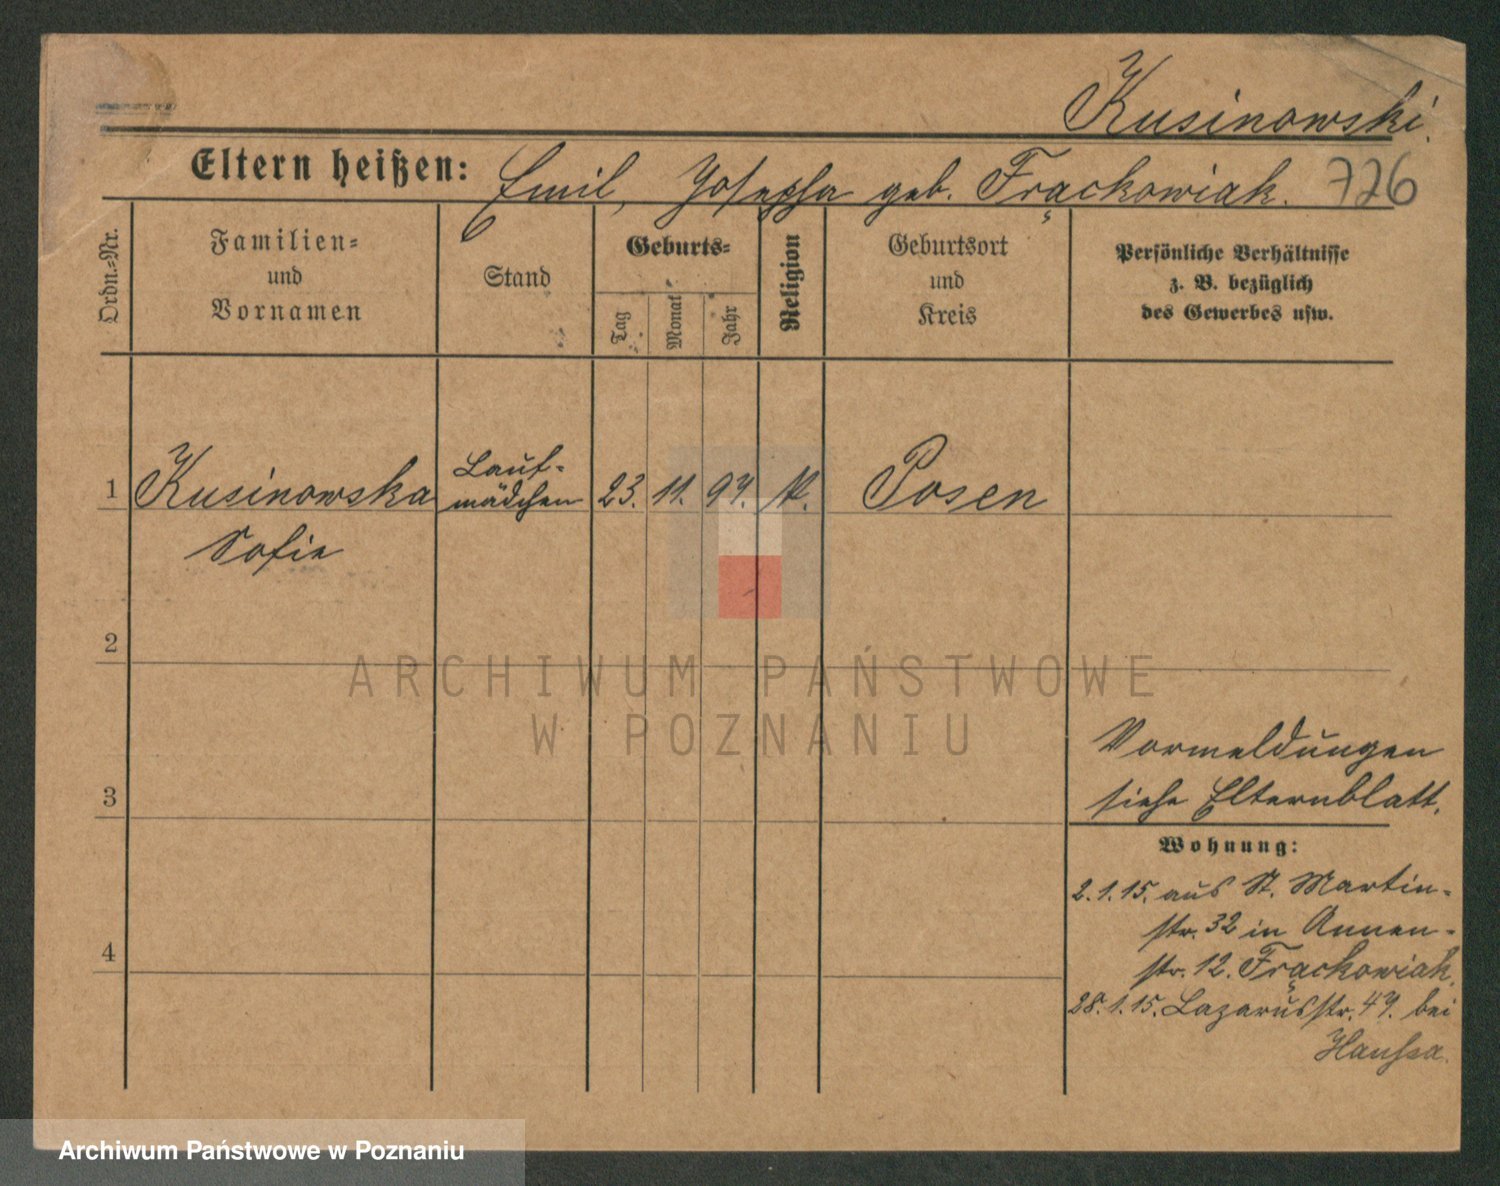 Kusinowski.
Eltern heißen: Emil, Josepha geb. Frąckowiak. 776
Ordn.-Nr.
Familien-
und
Vornamen
Stand
Geburts-
Tag
Monat
Jahr
Religion
Geburtsort
und
Kreis
Persönliche Verhältnisse
z. B. bezüglich
des Gewerbes usw.
1 Kusinowska Lauf-
mädchen 23. 11. 97. k. Posen
Sofie
2
ARCHIWUM PAŃSTWOWE
W POZNANIU
Vormeldungen
siehe Elternblatt.
3
Wohnung:
2.1.15. aus St. Martin-
str. 32 in Annen-
str. 12. Frąckowiak.
4
28.1.15. Lazarusstr. 47. bei
Archiwum Państwowe w Poznaniu